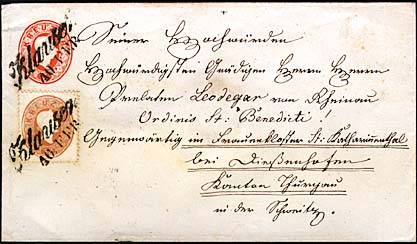 KREUZER
Klanitsen
AG: FER.
Klanitsen
AG: FER.
Seiner Hochwürden
Hochwürdigsten Gnädigen Herrn Herrn
Prelaten Leodegar von Rheinau
Ordinis St: Benedicti!
Gegenwärtig in Frauenkloster St: Katharinenthal
bei Dießenhofen
Kanton Thurgau
in der Schweitz.